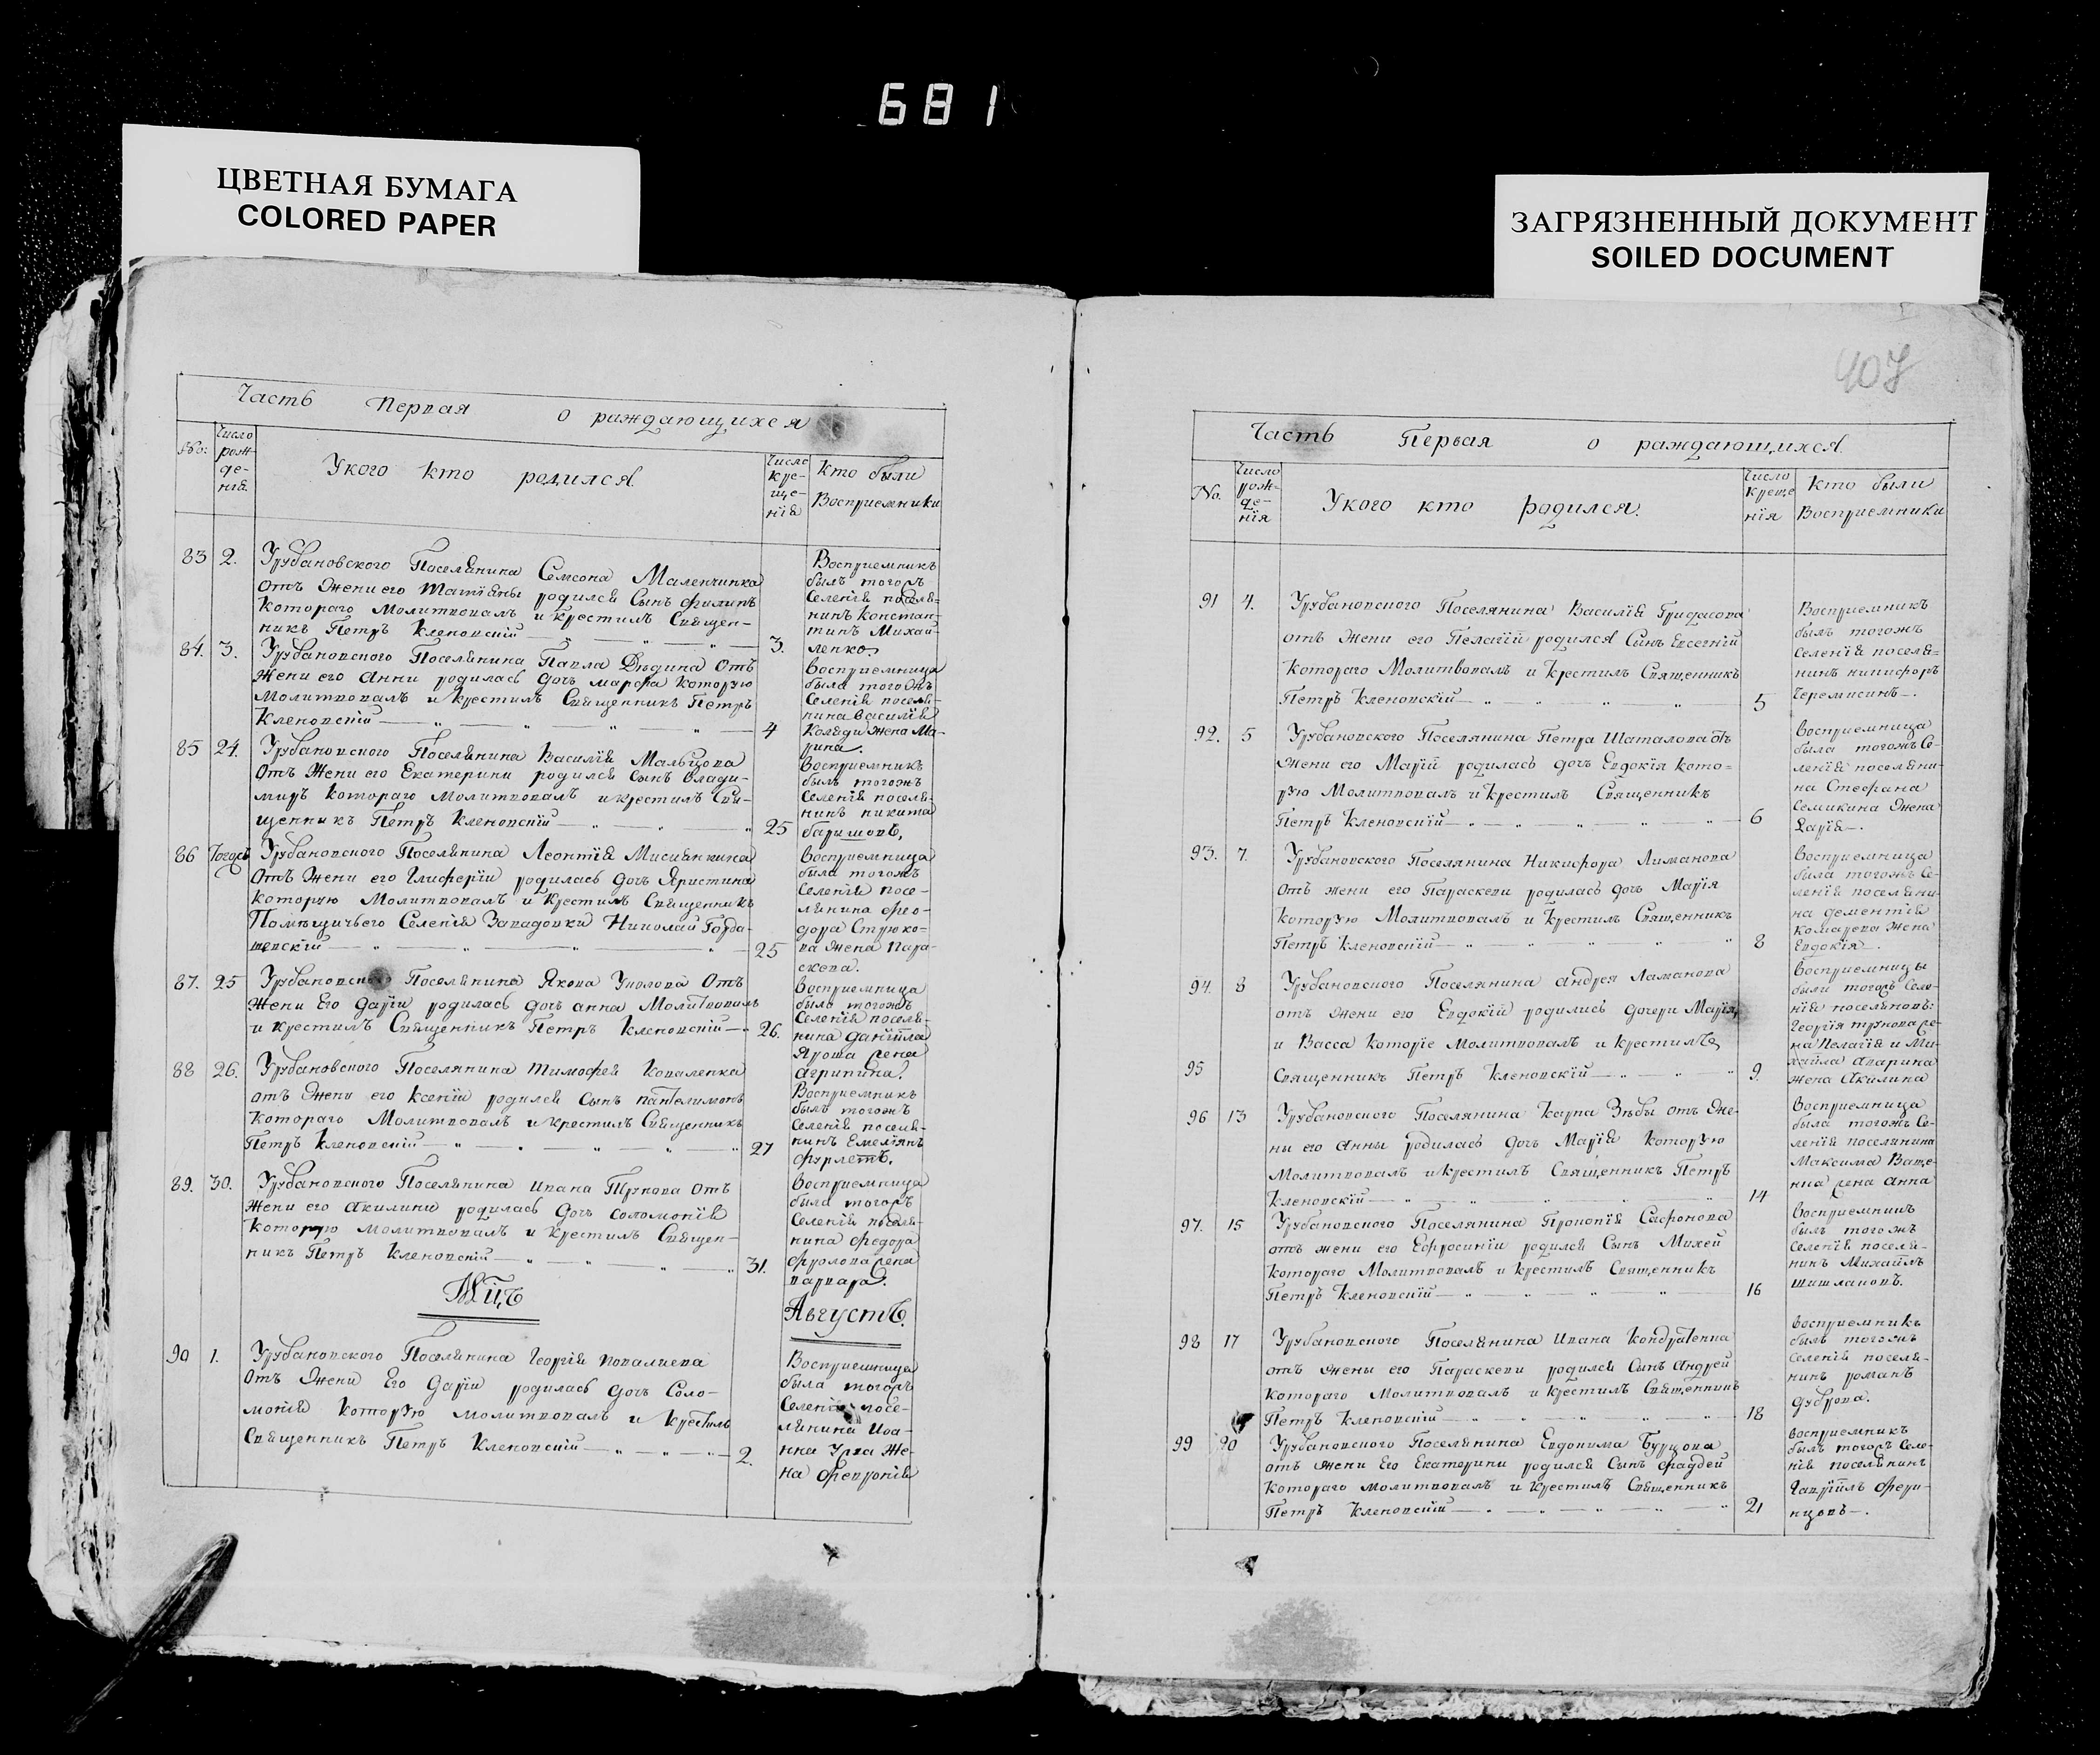 681
ЦВЕТНАЯ БУМАГА
COLORED PAPER
ЗАГРЯЗНЕННЫЙ ДОКУМЕНТ
SOILED DOCUMENT
407
Часть Первая о раждающихся
No: Число рож-де-нія. Укого кто родился. Число кре-ще-нія Кто были Восприемники
83 2. Урубановского Поселянина Семсона Маленчинка
отъ Жени его Татіяны родился Сынъ Филипъ
Котораго Молитвовалъ и Крестилъ Священ-
никъ Петръ Кленовскій 3.
Восприемникъ
былъ тогожъ
Селенія поселя=
нинъ Констан-
тинъ Михай-
ленко.
84. 3. Урубановского Поселянина Павла Дюдина Отъ
Жени его Анни родилась дочь марфа Которую
Молитвовалъ и Крестилъ Священникъ Петръ
Кленовскій 4
Восприемница
была тогожъ
Селенія поселя-
нина Василія
Коляди Жена Ма-
рина.
85 24. Урубановского Поселянина Василія Мальцова
Отъ Жени его Екатерини родился Сынъ Влади-
миръ Котораго Молитвовалъ и крестилъ Свя-
щенникъ Петръ Кленовскій 25
Восприемникъ
былъ тогожъ
Селенія поселя-
нинъ никита
баришовъ,
86 Тогожъ Урубановского Поселянина Леонтія Мисиянкина
Отъ Жени его Глиферіи родилась дочь Христина
Которую Молитвовалъ и Крестилъ Священникъ
Помѣщичьего Селенія Западовки Николай Горда-
шевскій 25
Восприемница
была тогожъ
Селенія посе-
лянина Фео-
дора Струко-
ва Жена Пара-
скева.
87. 25 Урубановского Поселянина Якова Уколова Отъ
Жени Его Даріи родилась дочь анна Молитвовалъ
и Крестилъ Священникъ Петръ Кленовскій 26.
Восприемница
была тогожъ
Селенія поселя-
нина Даніила
Яроша Жена
Агрипина.
88 26. Урубановского Поселянина Тимофея Коваленка
отъ Жени его Ксеніи родился Сынъ пантелимонъ
Котораго Молитвовалъ и крестилъ Священникъ
Петръ Кленовскій 27
Восприемникъ
былъ тогожъ
Селенія поселя-
нинъ Емеліянъ
Фурлетъ.
89. 30. Урубановского Поселянина ивана Трунова Отъ
Жени его Акилини родилась Дочь соломонія
Которую молитвовалъ и Крестилъ Священ-
никъ Петръ Кленовскій 31.
Восприемница
была тогожъ
Селенія поселя-
нина Федора
Фролова Жена
варвара.
Мцъ Августъ.
90 1. Урубановского Поселянина Георгія
Отъ Жени Его Даріи родилась дочь Соло-
монія Которую молитвовалъ и Крестилъ
Священникъ Петръ Кленовскій 2.
Восприемница
была тогожъ
Селенія посе-
лянина Иоа-
нна Же-
на Февронія
Часть Первая о раждающихся.
No. Число рож-де-нія Укого кто родился. Число Креще нія Кто были Восприемники
91 4. Урубановского Поселянина Василія Гридасова
отъ Жени его Пелагіи родился Сынъ Евсегній
Котораго Молитвовалъ и Крестилъ Священникъ
Петръ Кленовскій 5
Восприемникъ
былъ тогожъ
Селенія поселя=
нинъ никифоръ
Черемисинъ.
92. 5 Урубановского Поселянина Петра Шаталова отъ
Жени его Маріи родилась дочь Евдокія кото=
рую Молитвовалъ и Крестилъ Священникъ
Петръ Кленовскій 6
Восприемница
была тогожъ Се-
ленія поселяни-
на Стефана
Семикина Жена
Дарія.
93. 7. Урубановского Поселянина Никифора Лиманова
Отъ жени его Параскеви родилась дочь Марія
Которую Молитвовалъ и Крестилъ Священникъ
Петръ Кленовскій 8
Восприемница
была тогожъ Се-
ленія поселяни-
на дементія
Комарева Жена
Евдокія.
94. 8 Урубановского Поселянина андрея Ламанова
отъ Жени его Евдокіи родились дочери Марія,
и Васса Которіе Молитвовалъ и Крестилъ
95 Священникъ Петръ Кленовскій 9.
Восприемницы
были тогожъ Селе-
нія поселяновъ:
Георгія трунова Же-
на Пелагія и Ми-
хайла Апарина
Жена Акилина
96 13 Урубановского Поселянина Карпа Зѣбы отъ Же-
ны его Анны родилась дочь Марія Которую
Молитвовалъ и крестилъ Священникъ Петръ
Кленовскій 14
Восприемница
была тогожъ Се-
ленія поселянина
Максима Ваще-
нка Жена Анна
97. 15 Урубановского Поселянина Прокопія Сафонова
отъ жени его Ефросиніи родился Сынъ Михей
Котораго Молитвовалъ и крестилъ Священникъ
Петръ Кленовскій 16
Восприемникъ
былъ тогожъ
Селенія поселя-
нинъ Михаилъ
Шишлаковъ.
98 17 Урубановского Поселянина Ивана Кондратенка
отъ Жены его Параскеви родился Сынъ Андрей
Котораго Молитвовалъ и Крестилъ Священникъ
Петръ Кленовскій 18
Восприемникъ
былъ тогожъ
Селенія поселя-
нинъ романъ
Дуброва.
99 20 Урубановского Поселянина Евдокима Бурцова
отъ Жени Его Екатерини родился Сынъ Фаддей
Котораго Молитвовалъ и Крестилъ Священникъ
Петръ Кленовскій 21
Восприемникъ
былъ тогожъ Селе-
нія поселянинъ
Гавріилъ Фери-
нцовъ.